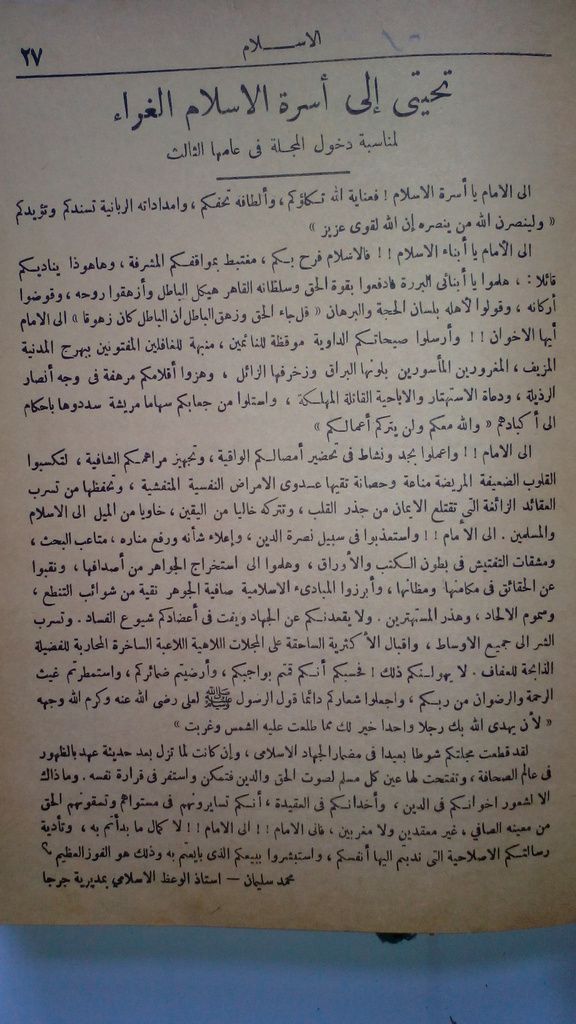 ٢٧
الاســـلام
تحيتى إلى أسرة الاسلام الغراء
لمناسبة دخول المجلة فى عامها الثالث
الى الامام يا أسرة الاسلام ! فعناية الله تـكلؤكم ، وألطافه تحفكم ، وامداداته الربانية تسندكم وتؤيدكم
« ولينصرن الله من ينصره إن الله لقوى عزيز »
الى الأمام يا أبناء الاسلام ! ! فالاسلام فرح بـكم ، مغتبط بمواقفـكم المشرفة ، وهاهوذا يناديـكم
قائلا : ، هلموا يا أبنائى البررة فادفعوا بقوة الحق وسلطانه القاهر هيكل الباطل وأزهقوا روحه ، وقوضوا
أركانه ، وقولوا لأهله بلسان الحجة والبرهان « قل جاء الحق وزهق الباطل ان الباطل كان زهوقا » الى الامام
أيها الاخوان ! ! وأرسلوا صيحاتـكم الداوية موقظة للنائمين ، منبهة للغافلين المفتونين ببهرج المدنية
المزيف ، المغرورين المأسورين بلونها البراق وزخرفها الزائل ، وهزوا أقلامكم مرهفة فى وجه أنصار
الرذيلة ، ودعاة الاستهتار والاباحية القاتلة المهلـكة ، واستلوا من جعابكم سهاما مريشة سددوها باحكام
الى أكبادهم « والله معكم ولن يتركم أعمالـكم »
الى الامام ! ! واعملوا بجد ونشاط فى تحضير أمصالـكم الواقية ، وتجهيز مراهمـكم الشافية ، لتكسبوا
القلوب الضعيفة المريضة مناعة وحصانة تقيها عـدوى الامراض النفسية المتفشية ، وتحفظها من تسرب
العقائد الزائفة التى تقتلع الايمان من جذر القلب ، وتتركه خاليا من اليقين ، خاويا من الميل الى الاسلام
والمسلمين . الى الأمام ! ! واستعذبوا فى سبيل نصرة الدين ، وإعلاء شأنه ورفع مناره ، متاعب البحث ،
ومشقات التفتيش فى بطون الـكتب والأوراق ، وهلموا الى استخراج الجواهر من أصدافها ، ونقبوا
عن الحقائق فى مكامنها ومظانها ، وأبرزوا المبادىء الاسلامية صافية الجوهر نقية من شوائب التنطع ،
وسموم الالحاد ، وهذر المستهترين . ولا يقعدنـكم عن الجهاد ويفت فى أعضادكم شيوع الفساد . وتسرب
الشر الى جميع الاوساط ، واقبال الأكثرية الساحقة على المجلات اللاهية اللاعبة الساخرة المحاربة للفضيلة
الذابحة للعفاف . لا يهولنـكم ذلك ! فحسبكم أنـكم قمتم بواجبكم ، وأرضيتم ضمائركم ، واستمطرتم غيث
الرحمة والرضوان من ربـكم ، واجعلوا شعاركم دائما قول الرسول ﷺ لعلى رضى الله عنه وكرم الله وجهه
« لأن يهدى الله بك رجلا واحدا خير لك مما طلعت عليه الشمس وغربت »
لقد قطعت مجلتكم شوطا بعيدا فى مضمار الجهاد الاسلامى ، وإن كانت لما تزل بعد حديثة عهد بالظهور
فى عالم الصحافة ، وتفتحت لها عين كل مسلم لصوت الحق والدين فتمكن واستقر فى قرارة نفسه . وما ذاك
الا لشعور اخوانـكم فى الدين ، وأخدانـكم فى العقيدة ، أنـكم تسايرونهم فى مستواهم وتسقونهم الحق
من معينه الصافي ، غير معقدين ولا مغربين ، فالى الامام ! ! الى الامام ! ! لا كمال ما بدأتم به ، وتأدية
رسالتـكم الاصلاحية التى ندبتم اليها أنفسكم ، واستبشروا ببيعكم الذى بايعتم به وذلك هو الفوز العظيم
محمد سليمان — استاذ الوعظ الاسلامي بمديرية جرجا